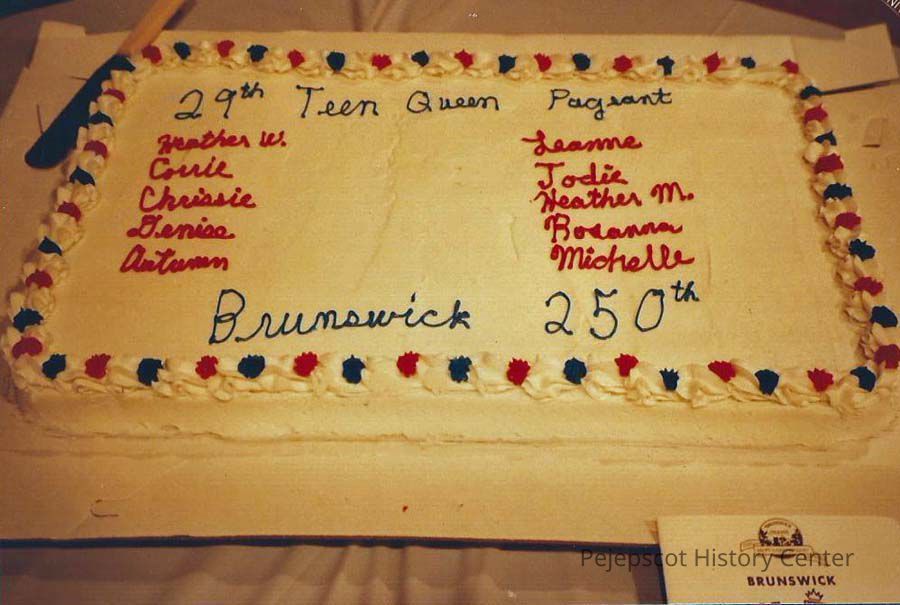 29th Teen Queen Pageant
Heather W.
Corrie
Chrissie
Denise
Autumn
Leanne
Jodie
Heather M.
Rosanna
Michelle
Brunswick 250th
Pejepscot History Center
BRUNSWICK